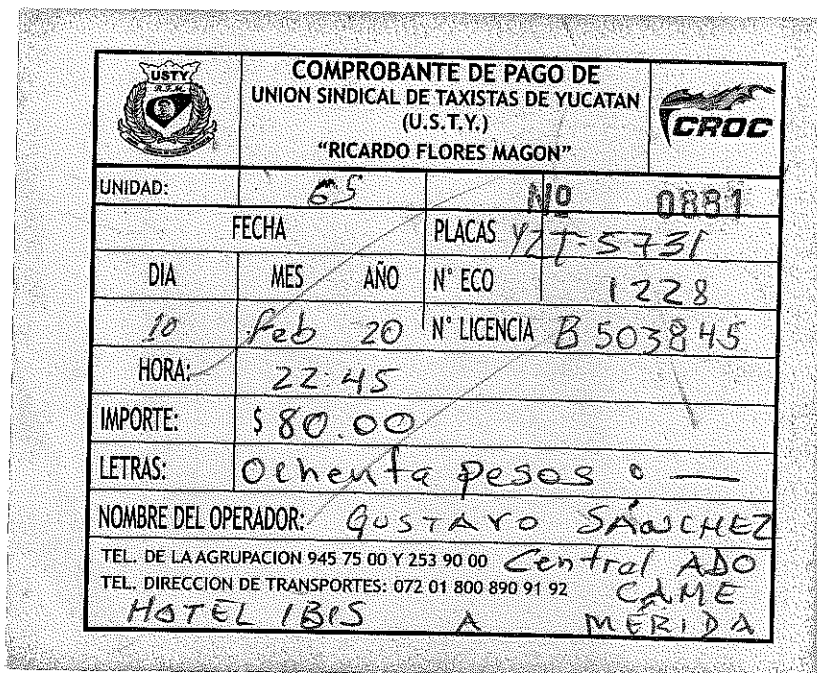 USTY
R.F.M.
COMPROBANTE DE PAGO DE
UNION SINDICAL DE TAXISTAS DE YUCATAN
(U.S.T.Y.)
"RICARDO FLORES MAGON"
CROC
UNIDAD: 65 Nº 0881
FECHA PLACAS YZT-5731
DIA MES AÑO N° ECO 1228
10 Feb 20 N° LICENCIA B 503845
HORA: 22:45
IMPORTE: $ 80.00
LETRAS: Ochenta pesos
NOMBRE DEL OPERADOR: GUSTAVO SÁNCHEZ
TEL. DE LA AGRUPACION 945 75 00 Y 253 90 00 Central ADO
TEL. DIRECCION DE TRANSPORTES: 072 01 800 890 91 92 CAME
HOTEL IBIS A MÉRIDA